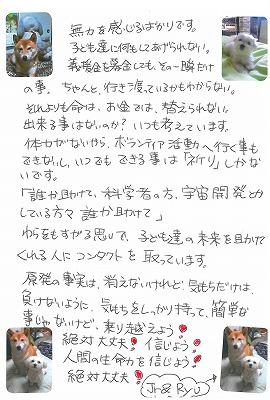 無力を感じるばかりです。
子ども達に何もしてあげられない。
義援金を募金しても、その一瞬だけ
の事。ちゃんと、行き渡っているかもわからない。
それよりも命は、お金では、替えられない。
出来る事はないのか？いつも考えています。
体力がないから、ボランティア活動へ行く事も
できないし、いつでもできる事は「祈り」しかない
です。
「誰か助けて、科学者の方、宇宙開発とか
している方々 誰か助けて」
わらをもすがる思いで、子ども達の未来を助けて
くれる人にコンタクトを取っています。
原発の事実は、消えないけれど、気持ちだけは、
負けないように、気持ちをしっかり持って、簡単な
事じゃないけど、乗り越えよう！
絶対大丈夫！信じよう！
人間の生命力を信じよう！
絶対大丈夫！ Jr& Ryu